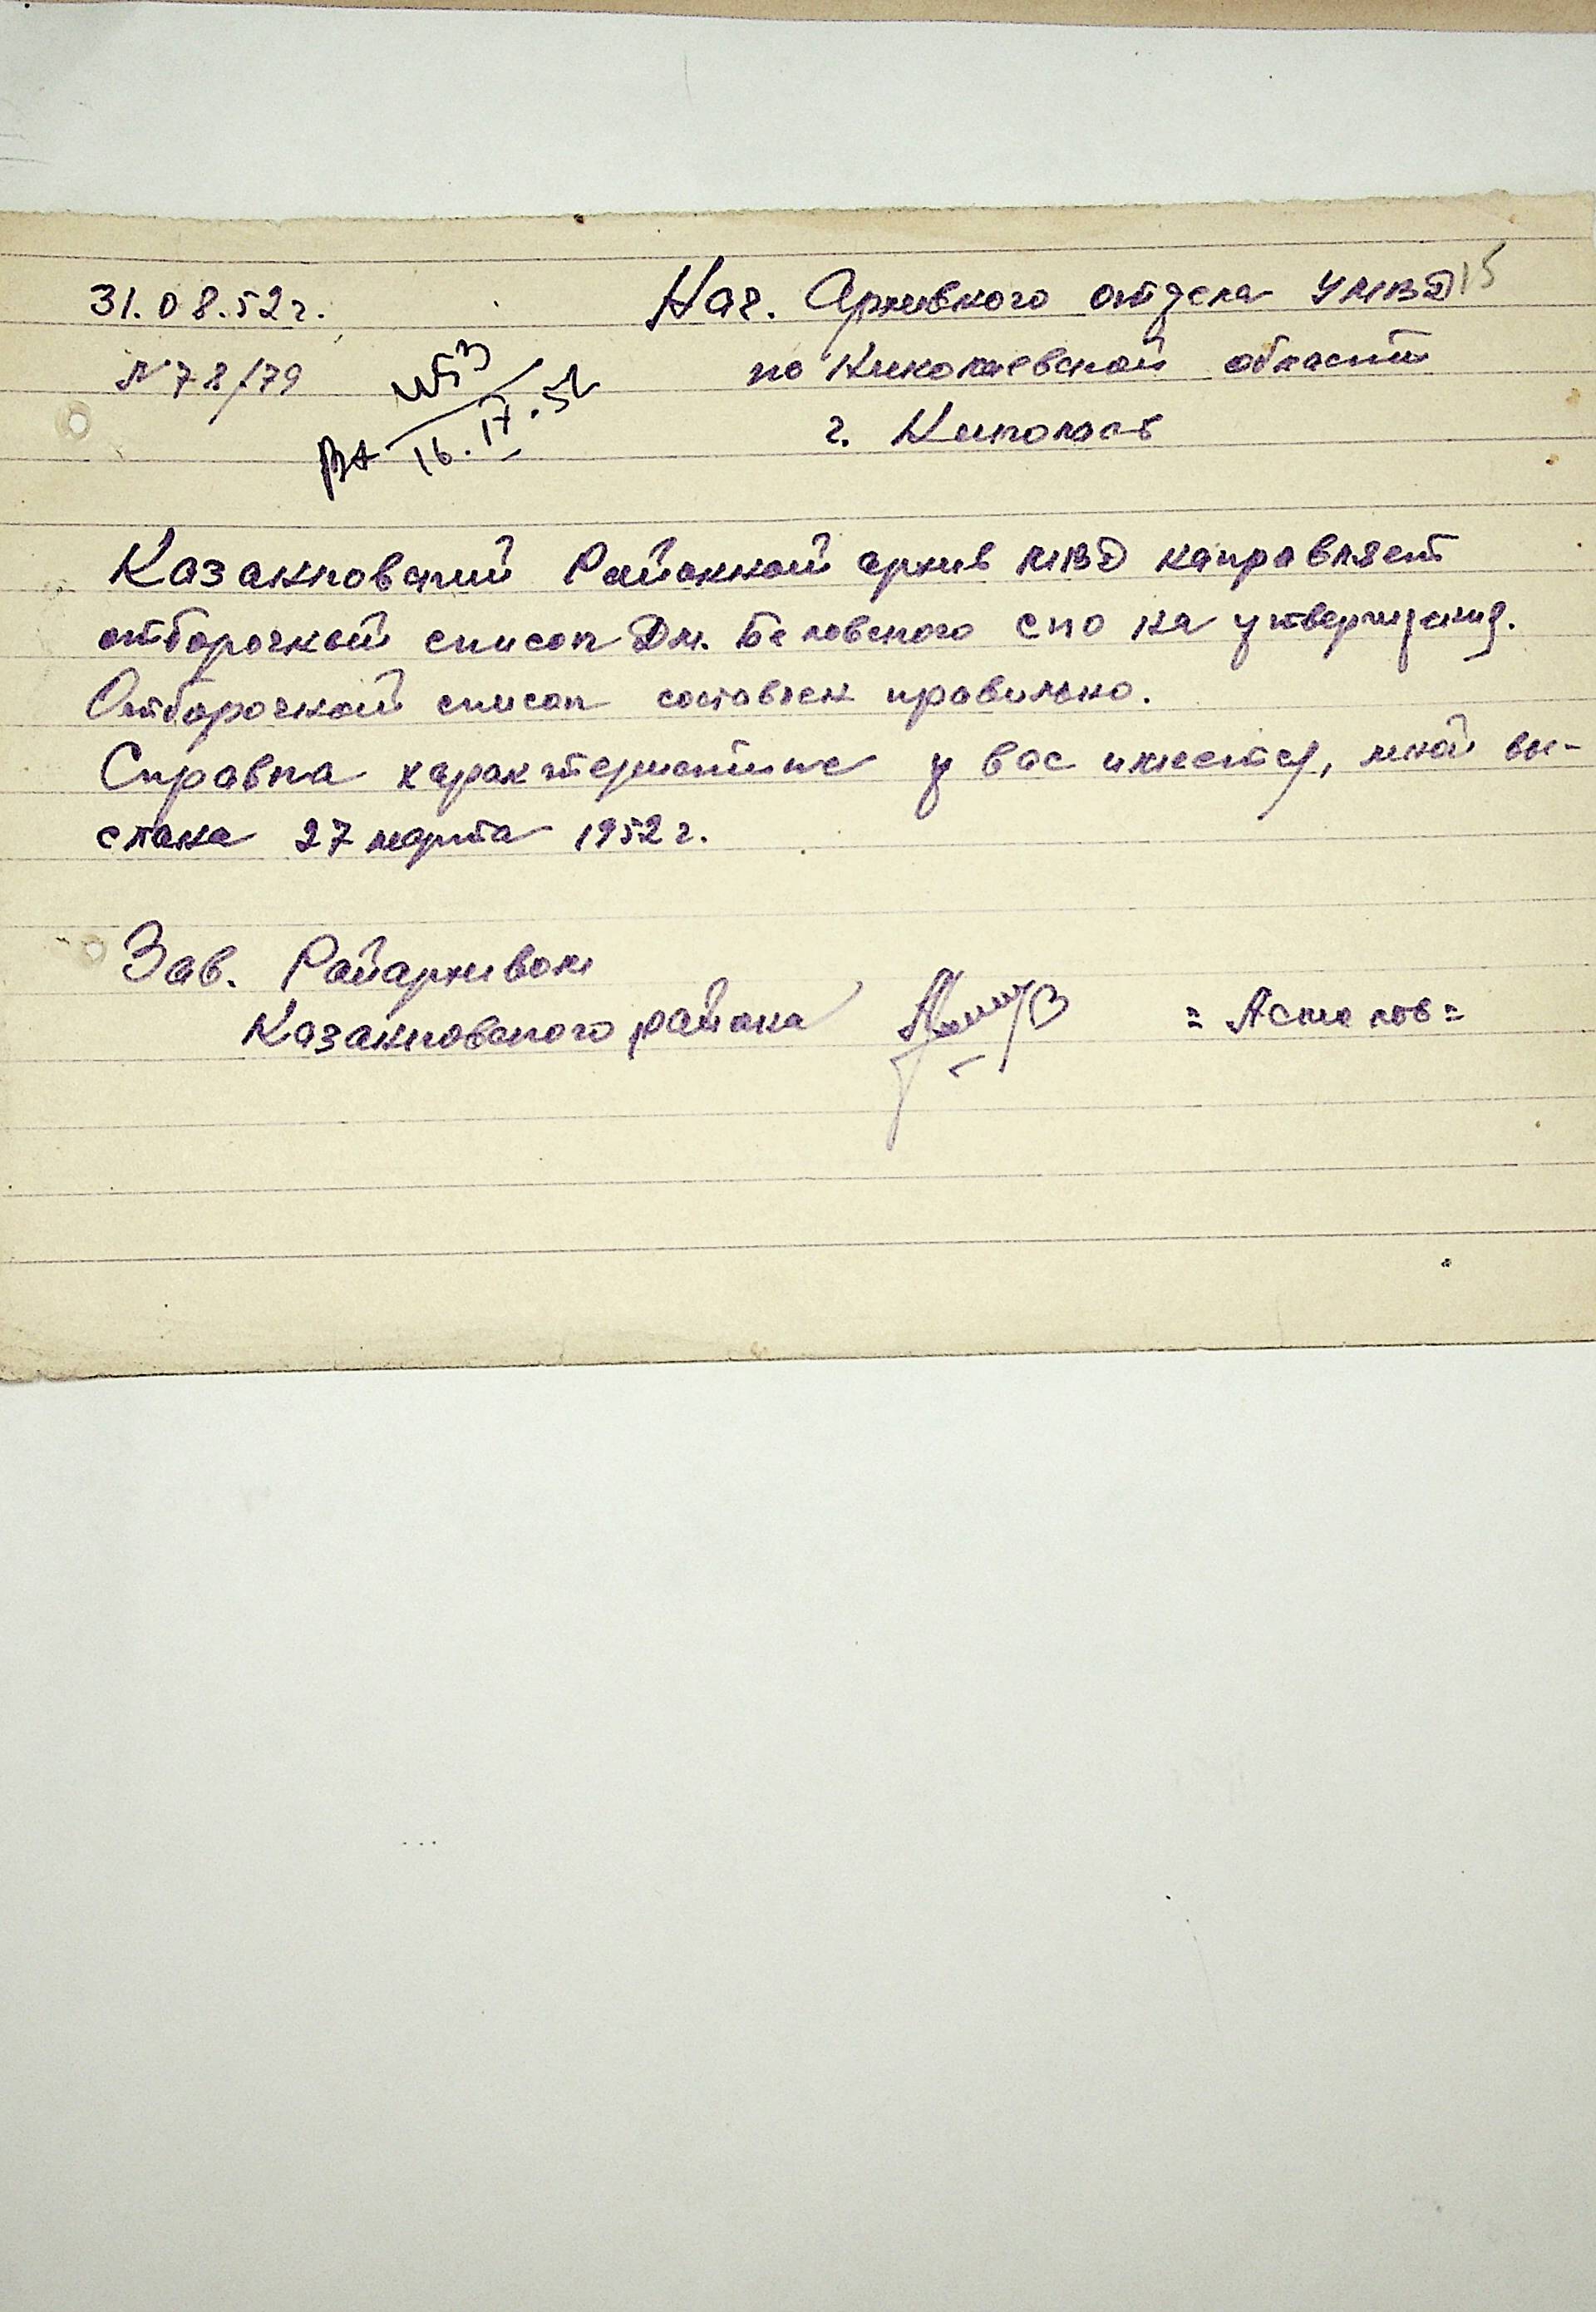 15
31.08.52г.
Нач. Архивного отдела УМВД
№78/79
по Николаевской области
г. Николаев
16.IX.52
Казанковский Районной архив МВД направляет
отборочной список Дм. Беловского спо на утверждения.
Отборочной список составлен правильно.
Справка характеристике у вас имеется, мной вы-
слана 27 марта 1952г.
Зав. Райархивом
Казанковского района
= Асмолов =